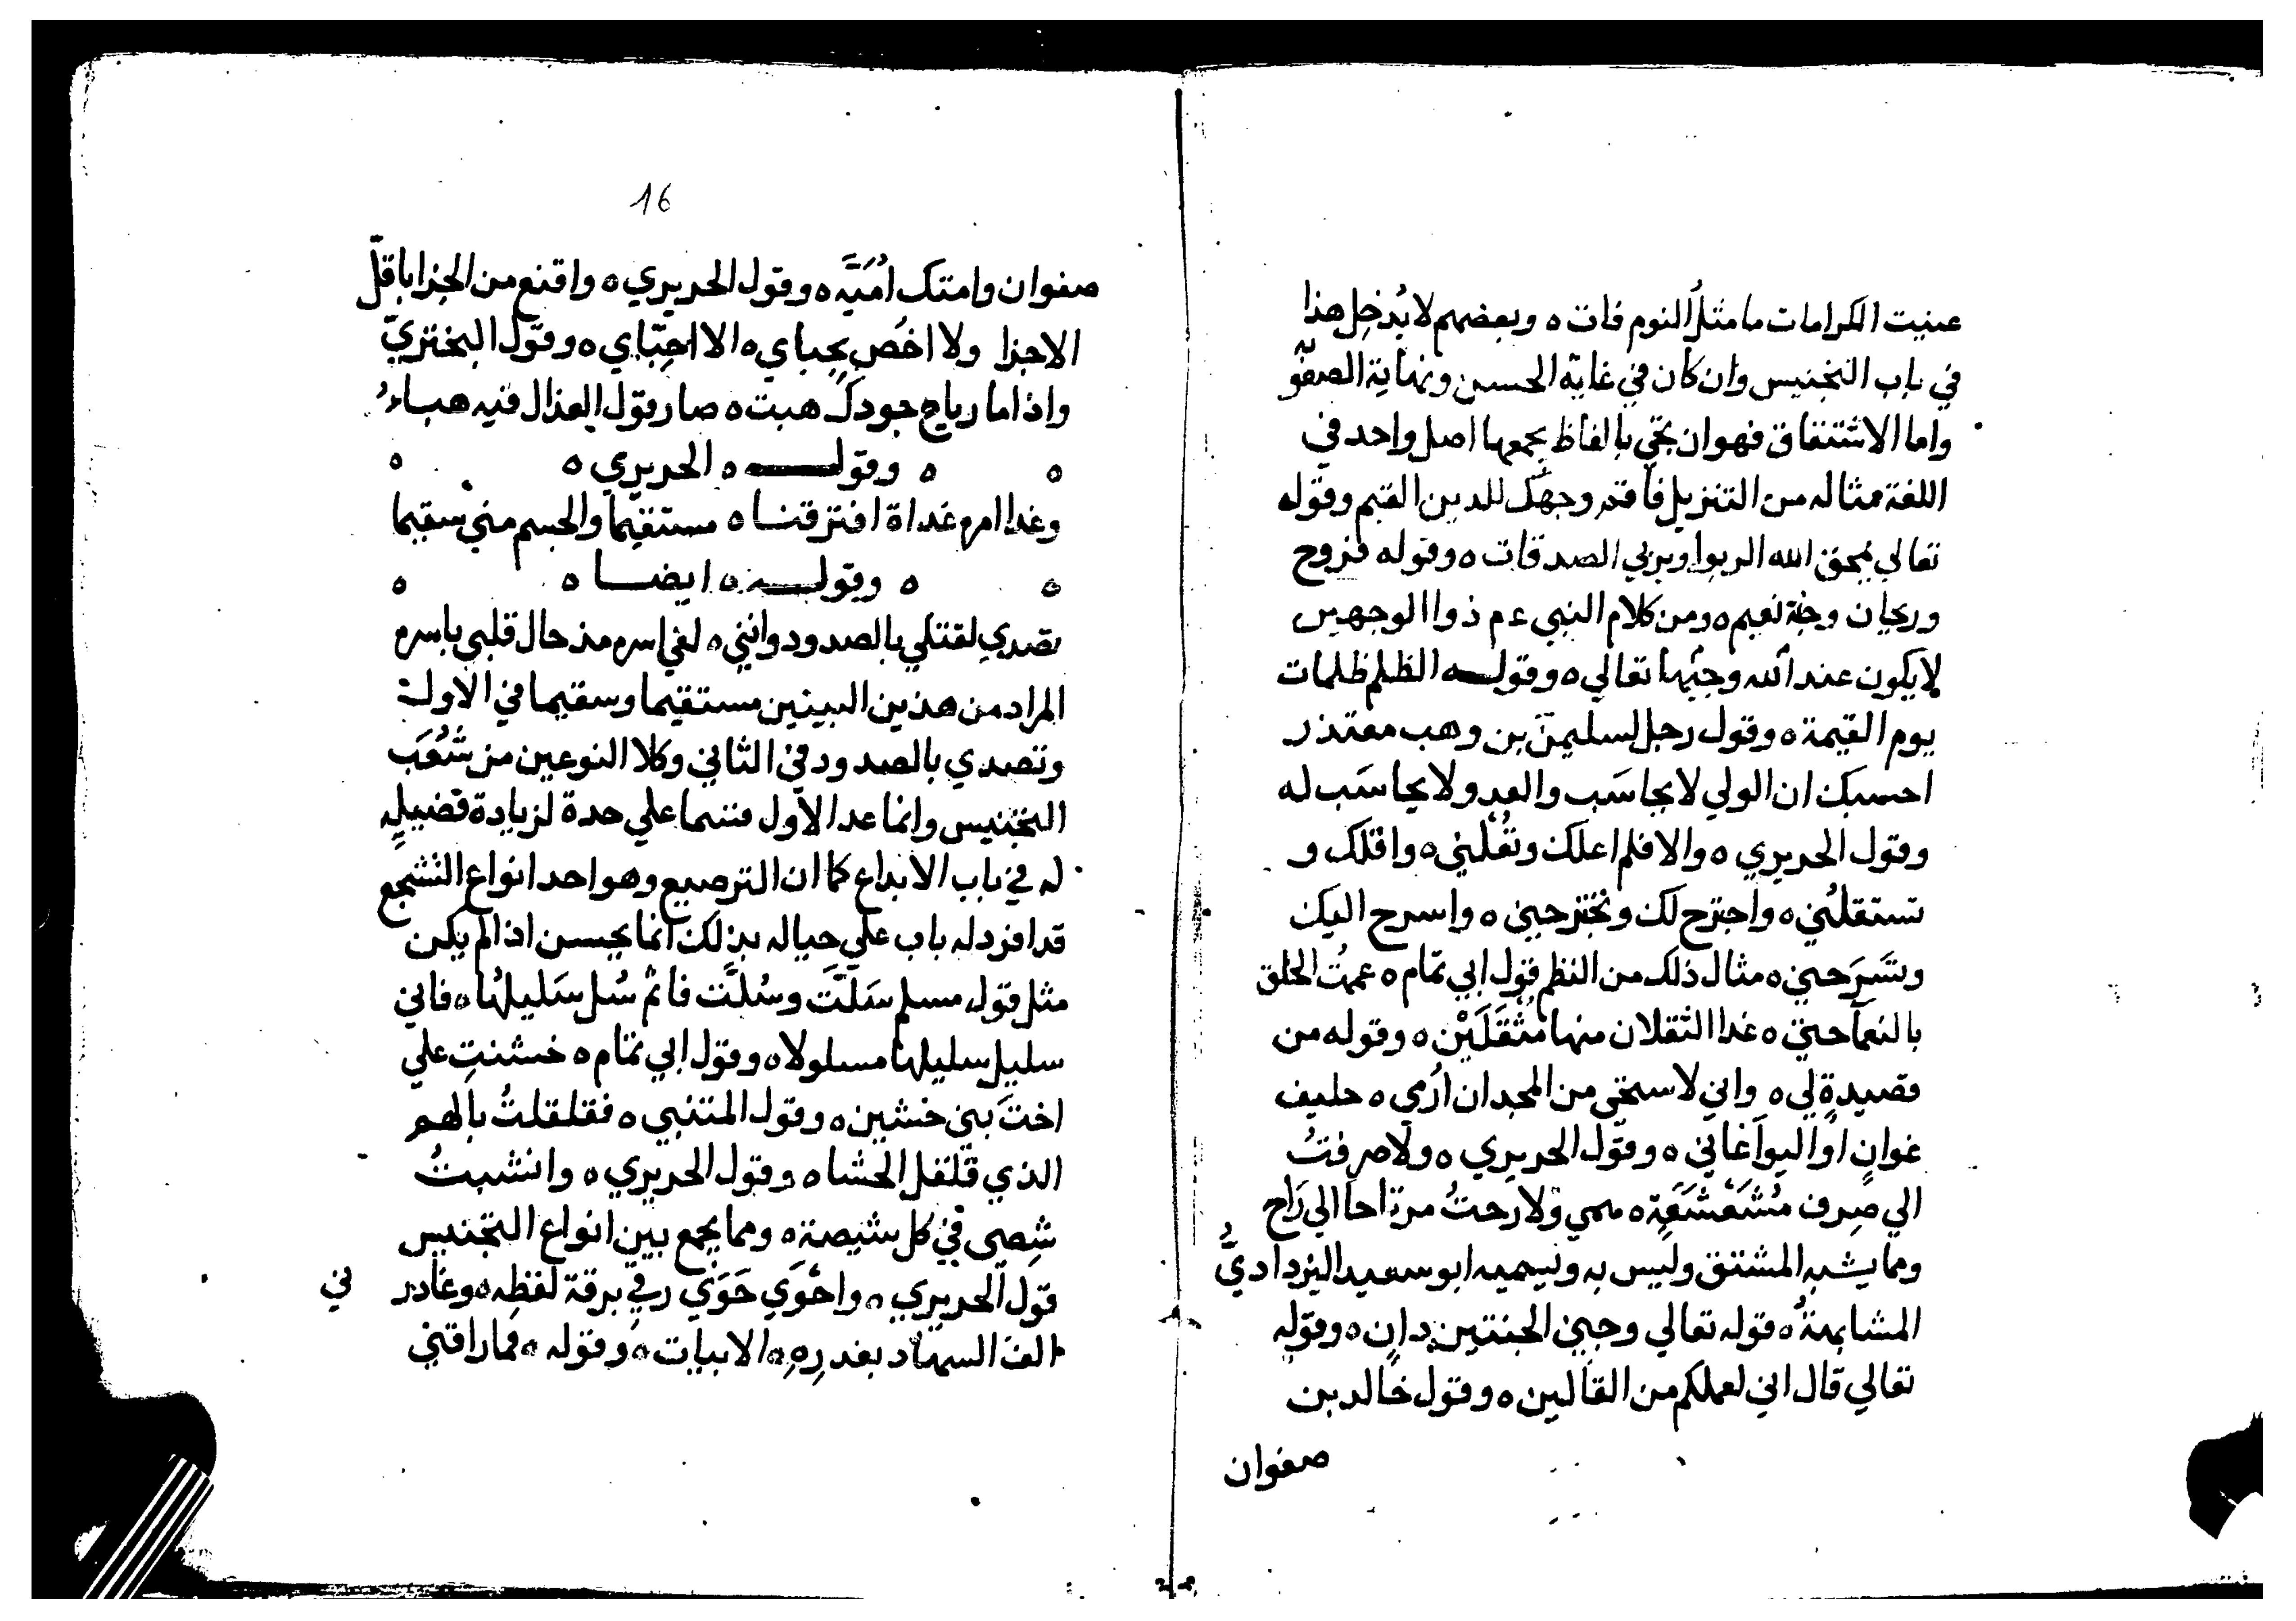 عنيت الكرامات ما مثلُ النوم فات ه وبعضهم لا يُدخِل هذا
في باب التجنيس وان كان في غاية الحسن ونهاية الصفوة
واما الاشتقاق فهو ان تجئ بالفاظ يجمعها اصل واحد في
اللغة مثاله من التنزيل فاقم وجهك للدين القيم وقوله
تعالي يمحق الله الربوا ويربي الصدقات ه وقوله فروح
وريحان وجنة نعيم ه ومن كلام النبي عم ذوا الوجهين
لا يكون عند الله وجيها تعالي ه وقولـــه الظلم ظلمات
يوم القيمة ه وقول رجل لسليمن بن وهب معتذر
احسبك ان الولي لا يحاسَب والعدو لا يحاسَب له
وقول الحريري ه والا فلم اعلك وتُعلّني ه واقلك و
تستقلّني ه واجترح لك وتجترحني ه واسرح اليك
وتسَرّحني ه مثال ذلك من النظم قول ابي تمّام ه عممْتَ الخلق
بالنعمآ حتي ه غدا الثقلان منها مُثْقَلَيْن ه وقوله من
قصيدةٍ لي ه واني لاستحي من المجد ان اُرَي ه حليف
غوانٍ او اليوا غاني ه وقول الحريري ه ولا صرفتُ
الي صِرف مُشَعْشَعَةٍ ه همي ولا رحتُ مرتاحا الي رَاح
ومما يشبه المشتق وليس به ويسميه ابو سعيد اليزداديُّ
المشابهةُ ه قوله تعالي وجني الجنتين دان ه وقوله
تعالي قال اني لعملكم من القالين ه وقول خالد بن
صفوان
16
صفوان وامتك اُمَيَّة ه وقول الحريري ه واقنع من الجزا باقلّ
الاجزا ولا اخُص بحباي ه الا احبّاي ه وقول البختريّ
واذا ما رياح جودك هبت ه صار قول العذال فيه هباءُ
ه ه وقولـــــه ه الحريري ه ه
وغدا امره غداة افترقنـا ه مستقيما والجسم مني سقيما
ه ه وقولــــه ه ايضــا ه ه
تصدي لقتلي بالصدود وانني ه لفي اسره مذ حال قلبي باسره
المراد من هذين البيتين مستقيما وسقيما في الاول
وتصدي بالصدود في الثاني وكلا النوعين من شُعَب
التجنيس وانما عد الاول قسما علي حدة لزيادة فضيلةٍ
له في باب الابداع كما ان الترصيع وهو احد انواع التسّجع
قد افرد له باب علي حياله بذلك انما يحسن اذا لم يكن
مثل قول مسلم سَلَّت وسُلَّت فا ثم سُل سَليلُها ه فاني
سليل سليلها مسلولا ه وقول ابي تمّام ه خشنتِ علي
اختَ بني خشين ه وقول المتنبي ه فقلقلتُ بالهم
الذي قلقل الحشا ه وقول الحريري ه وانشبتُ
شِصي في كل شيصة ه ومما يجمع بين انواع التجنيس
قول الحريري ه واحْوَي حَوَي رقي برقة لفظه ه وغادر ني
الف السهاد بغدرهِ ه الابيات ه وقوله ه فما راقني